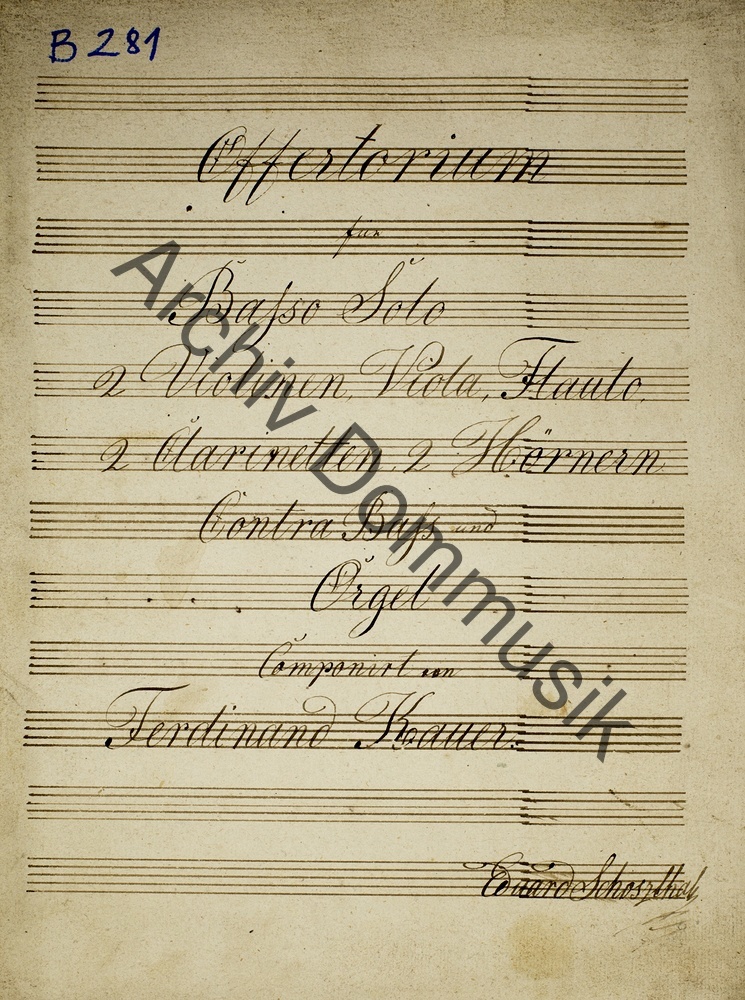 B 281
Offertorium
für
Basso Solo
2 Violinen, Viola, Flauto,
2 Clarinetten, 2 Hörnern
Contra Bass und
Orgel
Componirt von
Ferdinand Kauer.
Eduard
Archiv Dommusik